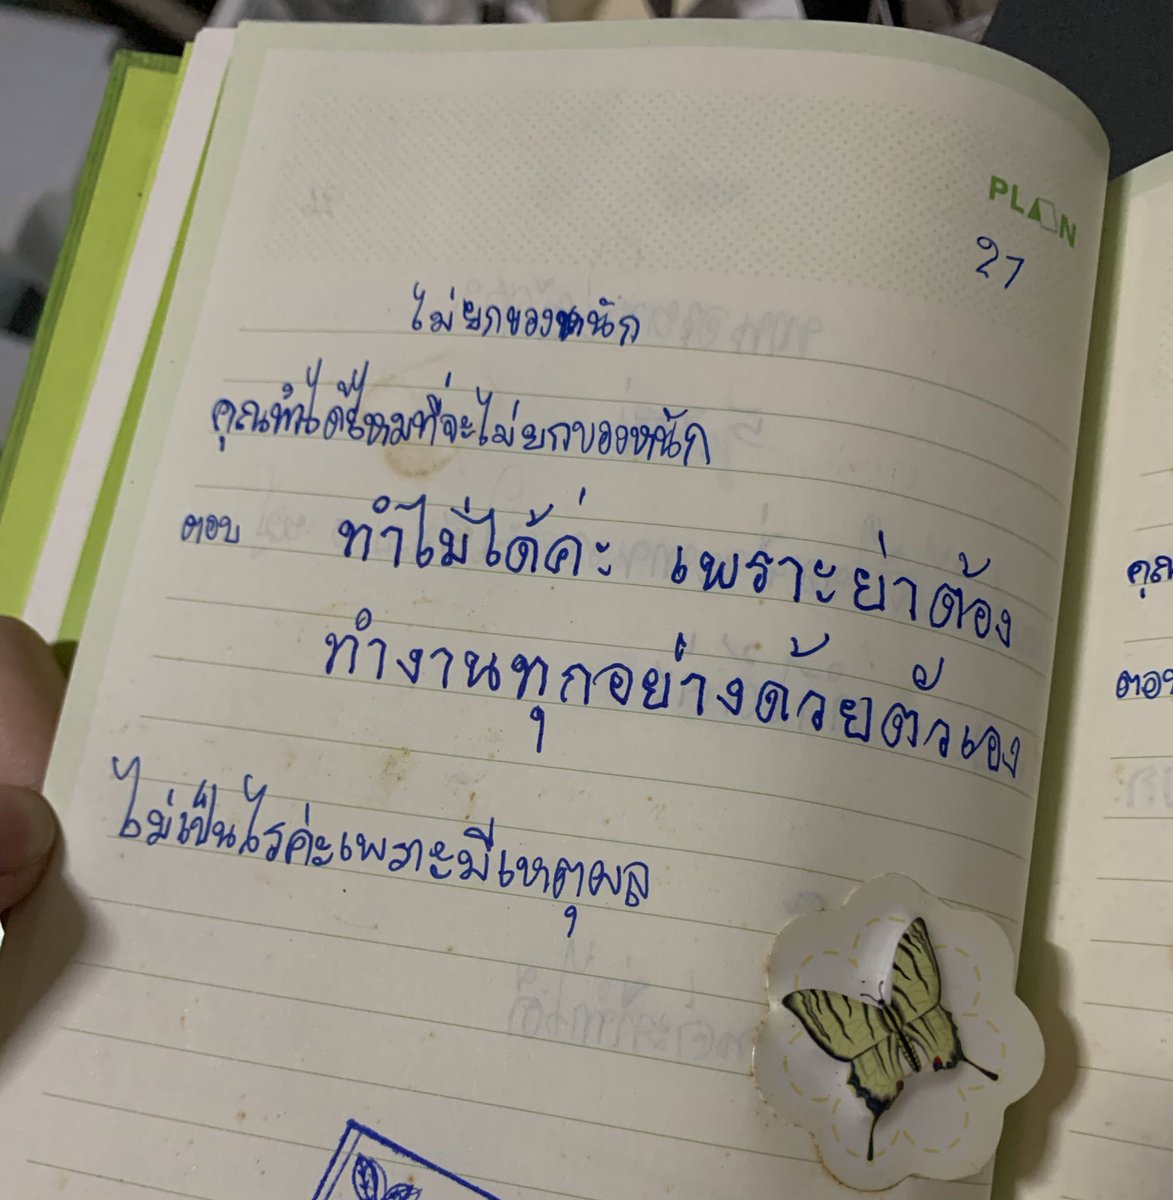 PLAN
27
ไม่ยกของหนัก
คุณทำได้ไหมที่จะไม่ยกของหนัก
ตอบ ทำไม่ได้ค่ะ เพราะย่าต้อง
ทำงานทุกอย่างด้วยตัวเอง
ไม่เป็นไรค่ะเพราะมีเหตุผล
คุณ
ตอบ